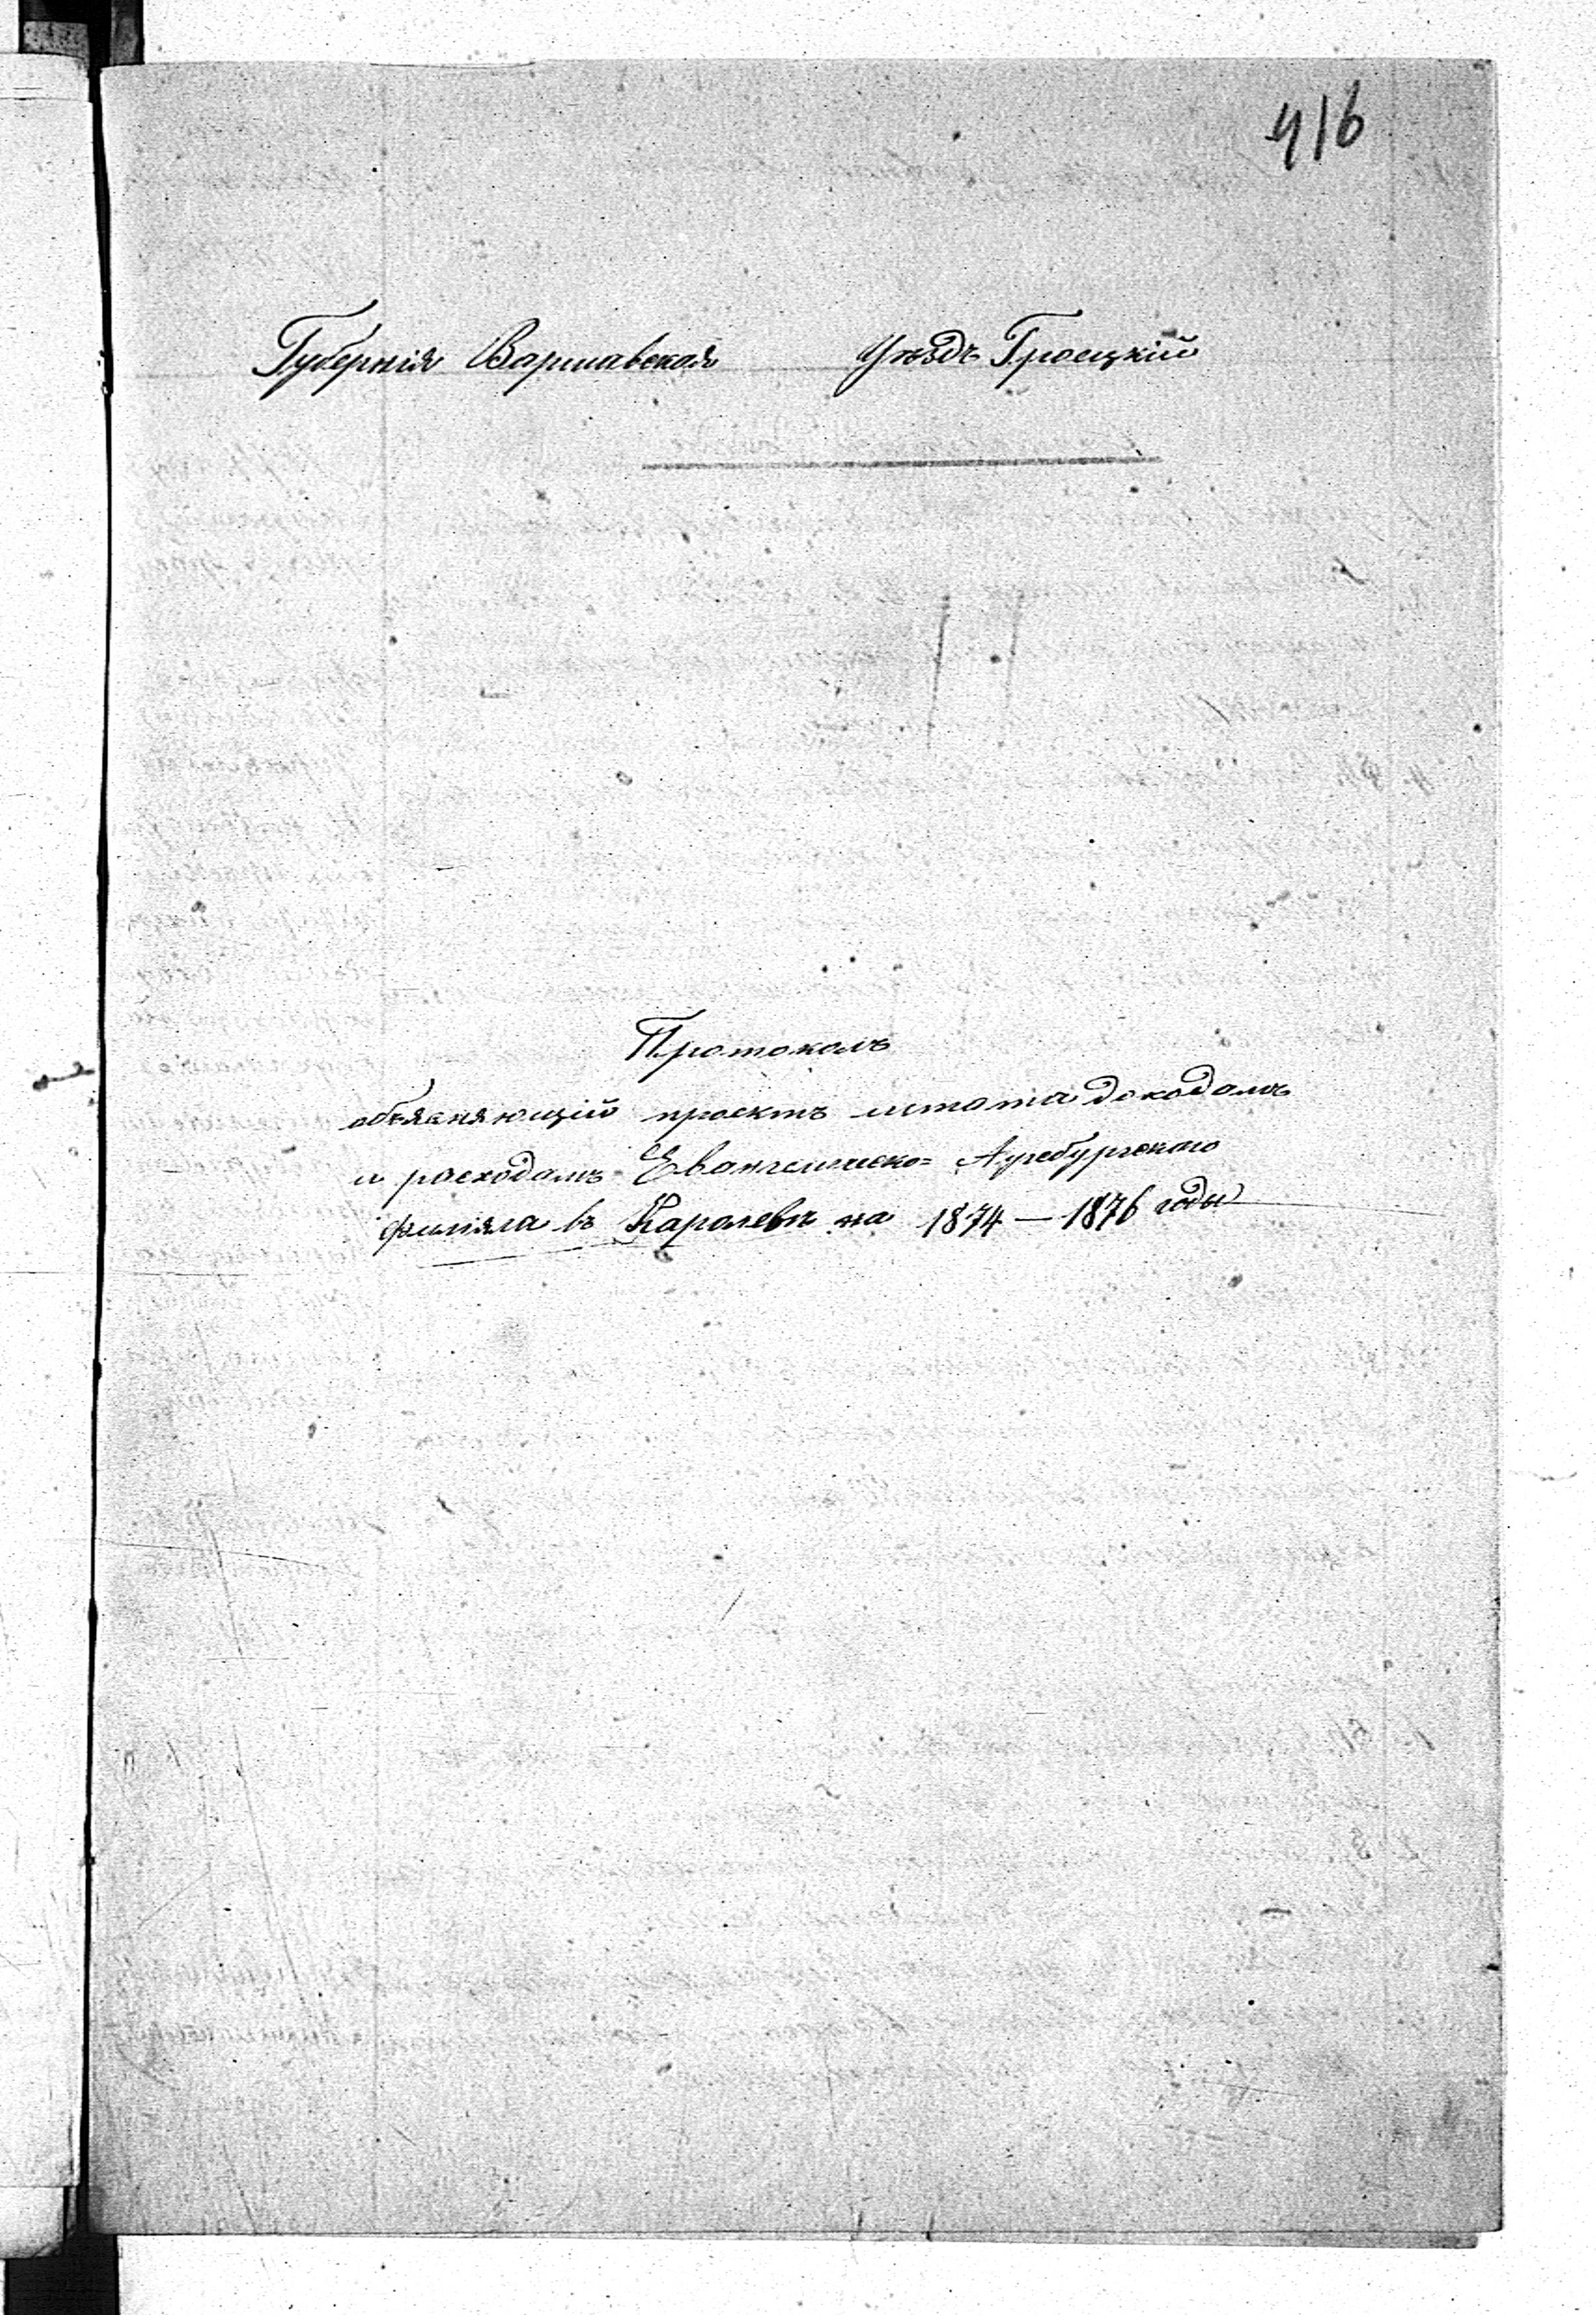 416
Губернія Варшавская Уѣздъ Гроецкій
Протоколъ
объясняющій проектъ штата доходамъ
и расходамъ Евангелическо= Аугсбургскаго
филіяла въ Каролевѣ на 1874 — 1876 годы